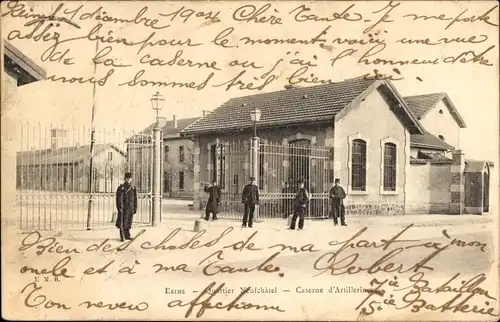 Reims 1 décembre 1904 Chère Tante. Je me porte
assez bien pour le moment voici une vue
de la caserne ou j'ai l'honneur d'être
nous sommes très bien
Bien des choses de ma part a mon
oncle et a ma Tante.
Ton neveu affection
Robert
Batterie
E. M. R.
REIMS - Quartier Neufchâtel - Caserne d'Artillerie